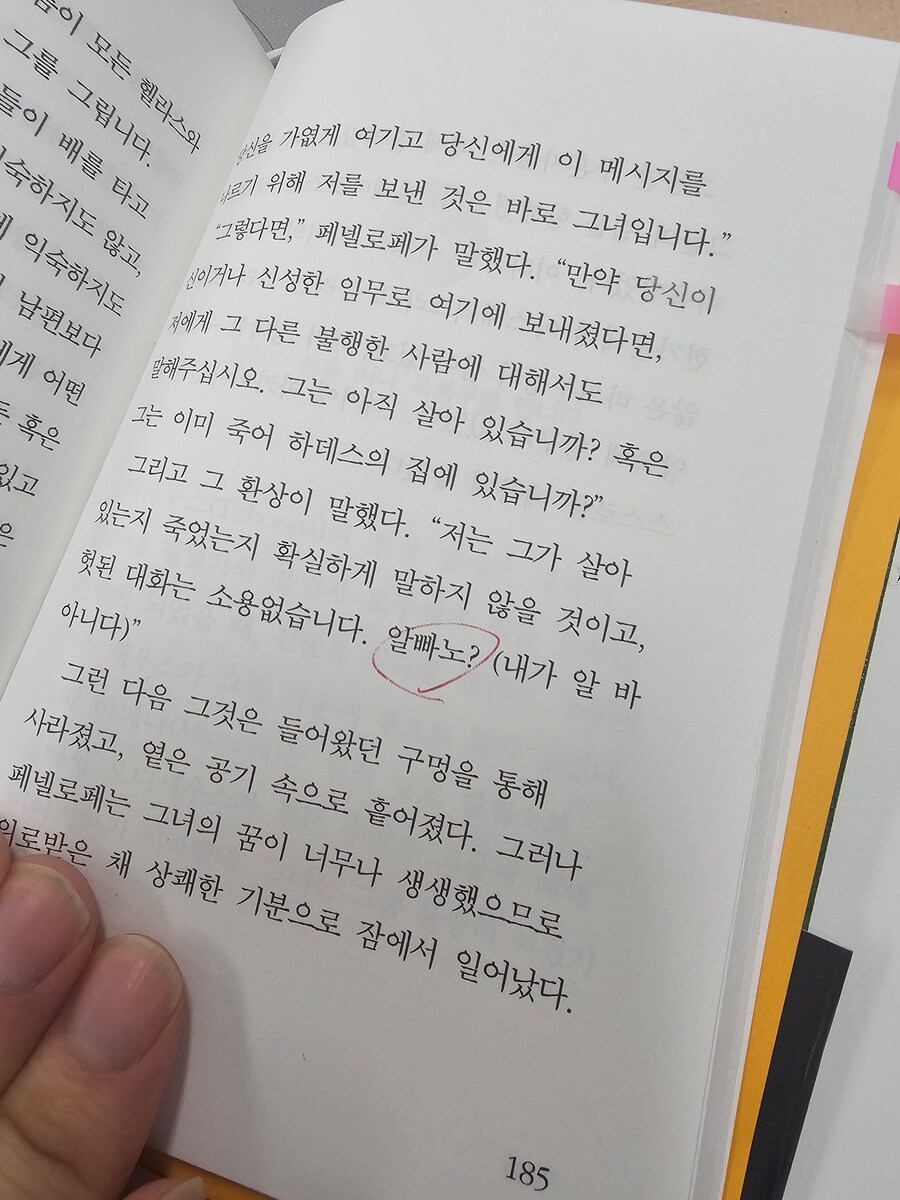 모든 헬라스와
그를 그립니다.
들이 배를 타고
익숙하지도 않고,
익숙하지도
남편보다
에게 어떤
혹은
잊고
은
당신을 가엾게 여기고 당신에게 이 메시지를
나르기 위해 저를 보낸 것은 바로 그녀입니다.”
“그렇다면,” 페넬로페가 말했다. “만약 당신이
신이거나 신성한 임무로 여기에 보내졌다면,
저에게 그 다른 불행한 사람에 대해서도
말해주십시오. 그는 아직 살아 있습니까? 혹은
그는 이미 죽어 하데스의 집에 있습니까?”
그리고 그 환상이 말했다. “저는 그가 살아
있는지 죽었는지 확실하게 말하지 않을 것이고,
헛된 대화는 소용없습니다. 알빠노? (내가 알 바
아니다)”
그런 다음 그것은 들어왔던 구멍을 통해
사라졌고, 옅은 공기 속으로 흩어졌다. 그러나
페넬로페는 그녀의 꿈이 너무나 생생했으므로
위로받은 채 상쾌한 기분으로 잠에서 일어났다.
185